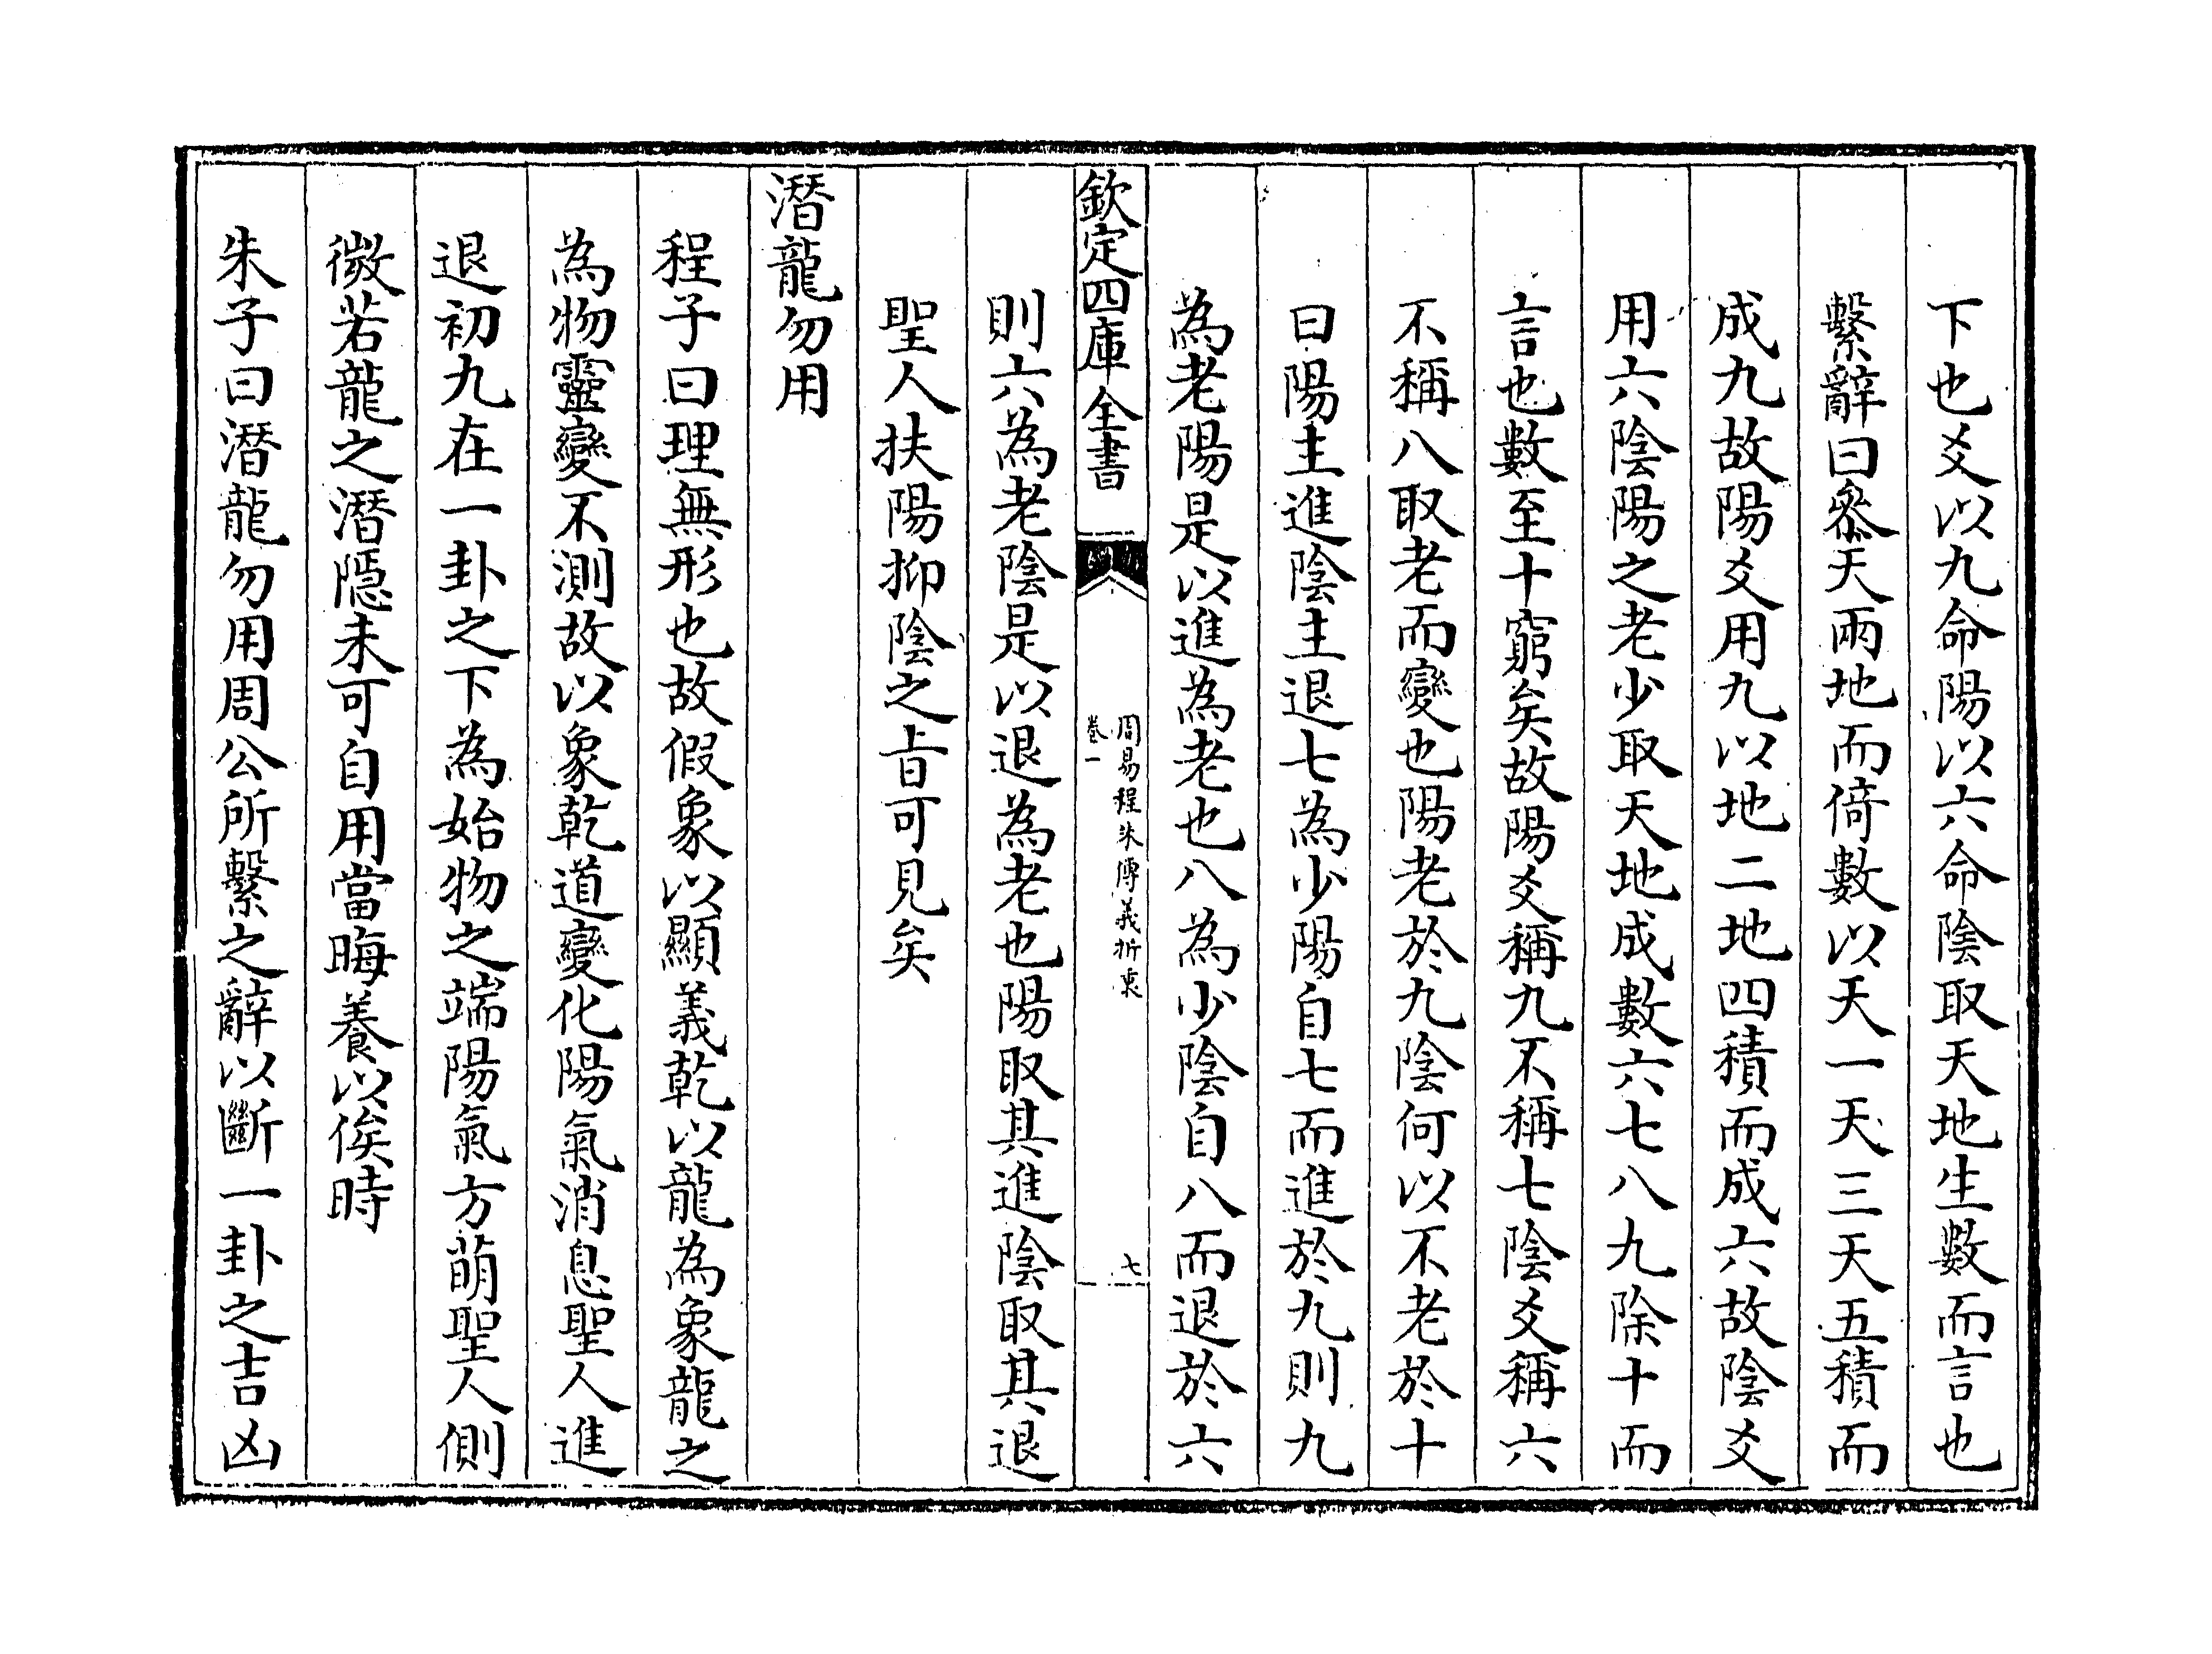 下也爻以九命陽以六命陰取天地生數而言也
繫辭曰叅天兩地而倚數以天一天三天五積而
成九故陽爻用九以地二地四積而成六故陰爻
用六陰陽之老少取天地成數六七八九除十而
言也數至十窮矣故陽爻稱九不稱七陰爻稱六
不稱八取老而變也陽老於九陰何以不老於十
曰陽主進陰主退七為少陽自七而進於九則九
為老陽是以進為老也八為少陰自八而退於六
欽定四庫全書
周易程朱傳義折衷
卷一
七
則六為老陰是以退為老也陽取其進陰取其退
聖人扶陽抑陰之㫖可見矣
潛龍勿用
程子曰理無形也故假象以顯義乾以龍為象龍之
為物靈變不測故以象乾道變化陽氣消息聖人進
退初九在一卦之下為始物之端陽氣方萌聖人側
微若龍之潛隱未可自用當晦養以俟時
朱子曰潛龍勿用周公所繫之辭以斷一卦之吉凶